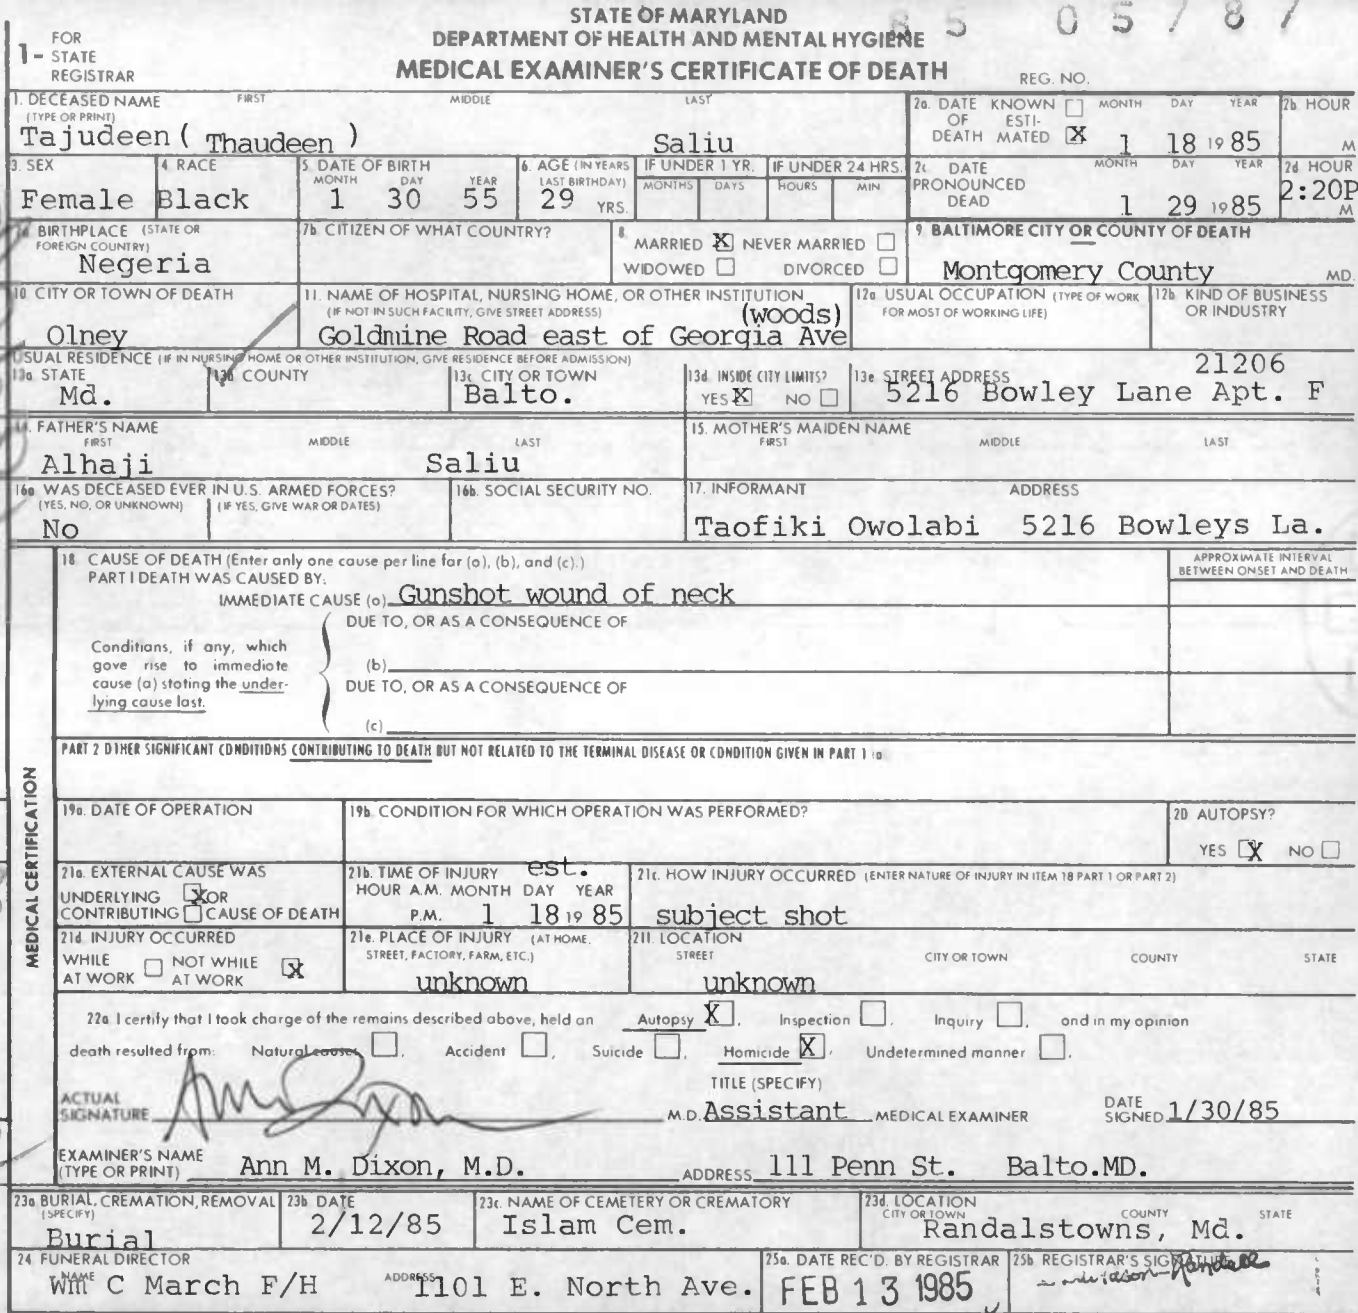 STATE OF MARYLAND
DEPARTMENT OF HEALTH AND MENTAL HYGIENE
MEDICAL EXAMINER'S CERTIFICATE OF DEATH
85 05787
1- FOR STATE REGISTRAR
REG. NO.
1. DECEASED NAME (TYPE OR PRINT) FIRST MIDDLE LAST
Tajudeen ( Thaudeen ) Saliu
2a. DATE OF DEATH KNOWN ☐ ESTIMATED ☒ MONTH DAY YEAR
1 18 1985
2b. HOUR M
3. SEX
Female
4. RACE
Black
5. DATE OF BIRTH MONTH DAY YEAR
1 30 55
6. AGE (IN YEARS LAST BIRTHDAY)
29 YRS.
IF UNDER 1 YR. MONTHS DAYS
IF UNDER 24 HRS. HOURS MIN
2c. DATE PRONOUNCED DEAD MONTH DAY YEAR
1 29 1985
2d. HOUR
2:20P M
7a. BIRTHPLACE (STATE OR FOREIGN COUNTRY)
Negeria
7b. CITIZEN OF WHAT COUNTRY?
8. MARRIED ☒ NEVER MARRIED ☐
WIDOWED ☐ DIVORCED ☐
9. BALTIMORE CITY OR COUNTY OF DEATH
Montgomery County MD.
10. CITY OR TOWN OF DEATH
Olney
11. NAME OF HOSPITAL, NURSING HOME, OR OTHER INSTITUTION
(IF NOT IN SUCH FACILITY, GIVE STREET ADDRESS) (woods)
Goldmine Road east of Georgia Ave
12a. USUAL OCCUPATION (TYPE OF WORK FOR MOST OF WORKING LIFE)
12b. KIND OF BUSINESS OR INDUSTRY
USUAL RESIDENCE (IF IN NURSING HOME OR OTHER INSTITUTION, GIVE RESIDENCE BEFORE ADMISSION)
13a. STATE
Md.
13b. COUNTY
13c. CITY OR TOWN
Balto.
13d. INSIDE CITY LIMITS?
YES ☒ NO ☐
13e. STREET ADDRESS 21206
5216 Bowley Lane Apt. F
14. FATHER'S NAME FIRST MIDDLE LAST
Alhaji Saliu
15. MOTHER'S MAIDEN NAME FIRST MIDDLE LAST
16a. WAS DECEASED EVER IN U.S. ARMED FORCES?
(YES, NO, OR UNKNOWN) (IF YES, GIVE WAR OR DATES)
No
16b. SOCIAL SECURITY NO.
17. INFORMANT ADDRESS
Taofiki Owolabi 5216 Bowleys La.
MEDICAL CERTIFICATION
18. CAUSE OF DEATH (Enter only one cause per line for (a), (b), and (c).)
APPROXIMATE INTERVAL BETWEEN ONSET AND DEATH
PART I DEATH WAS CAUSED BY:
IMMEDIATE CAUSE (a) Gunshot wound of neck
DUE TO, OR AS A CONSEQUENCE OF
Conditions, if any, which gave rise to immediate cause (a) stating the underlying cause last.
(b)
DUE TO, OR AS A CONSEQUENCE OF
(c)
PART 2 OTHER SIGNIFICANT CONDITIONS CONTRIBUTING TO DEATH BUT NOT RELATED TO THE TERMINAL DISEASE OR CONDITION GIVEN IN PART 1 (a)
19a. DATE OF OPERATION
19b. CONDITION FOR WHICH OPERATION WAS PERFORMED?
20 AUTOPSY?
YES ☒ NO ☐
21a. EXTERNAL CAUSE WAS
UNDERLYING ☒ OR
CONTRIBUTING ☐ CAUSE OF DEATH
21b. TIME OF INJURY est.
HOUR A.M. MONTH DAY YEAR
P.M. 1 18 1985
21c. HOW INJURY OCCURRED (ENTER NATURE OF INJURY IN ITEM 18 PART 1 OR PART 2)
subject shot
21d. INJURY OCCURRED
WHILE AT WORK ☐ NOT WHILE AT WORK ☒
21e. PLACE OF INJURY (AT HOME, STREET, FACTORY, FARM, ETC.)
unknown
21f. LOCATION STREET CITY OR TOWN COUNTY STATE
unknown
22a. I certify that I took charge of the remains described above, held an Autopsy ☒, Inspection ☐, Inquiry ☐, and in my opinion
death resulted from: Natural causes ☐, Accident ☐, Suicide ☐, Homicide ☒, Undetermined manner ☐.
TITLE (SPECIFY)
ACTUAL SIGNATURE Ann Dixon M.D. Assistant MEDICAL EXAMINER
DATE SIGNED 1/30/85
EXAMINER'S NAME (TYPE OR PRINT) Ann M. Dixon, M.D. ADDRESS 111 Penn St. Balto.MD.
23a. BURIAL, CREMATION, REMOVAL (SPECIFY)
Burial
23b. DATE
2/12/85
23c. NAME OF CEMETERY OR CREMATORY
Islam Cem.
23d. LOCATION CITY OR TOWN COUNTY STATE
Randalstowns, Md.
24. FUNERAL DIRECTOR
NAME Wm C March F/H ADDRESS 1101 E. North Ave.
25a. DATE REC'D. BY REGISTRAR
FEB 13 1985
25b. REGISTRAR'S SIGNATURE